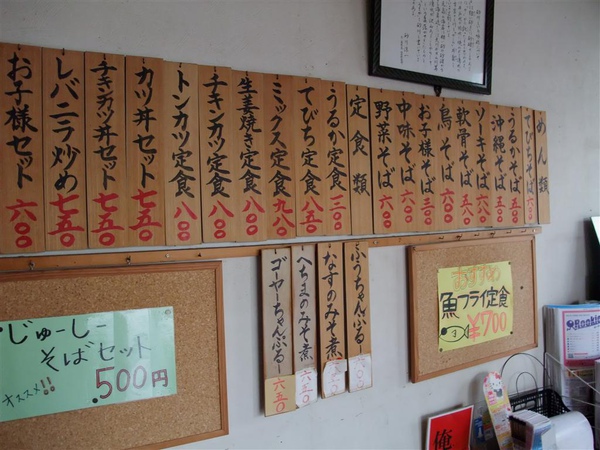 めん類
てびちそば 六〇〇
うるかそば 五五〇
沖縄そば 五〇〇
ソーキそば 六〇〇
軟骨そば 五八〇
鳥そば 六〇〇
お子様そば 三〇〇
中味そば 六〇〇
野菜そば 六〇〇
定食類
うるか定食 一、二〇〇
てびち定食 八五〇
ミックス定食 九八〇
生姜焼き定食 八〇〇
チキンカツ定食 八〇〇
トンカツ定食 八〇〇
カツ丼セット 七五〇
チキカツ丼セット 七五〇
レバニラ炒め 七五〇
お子様セット 六〇〇
ふうちゃんぷるー
なすのみそ煮
へちまのみそ煮
ゴーヤーちゃんぷるー 六五〇
おすすめ
魚フライ定食
¥700
じゅーしー
そばセット
オススメ!!
500円
俺